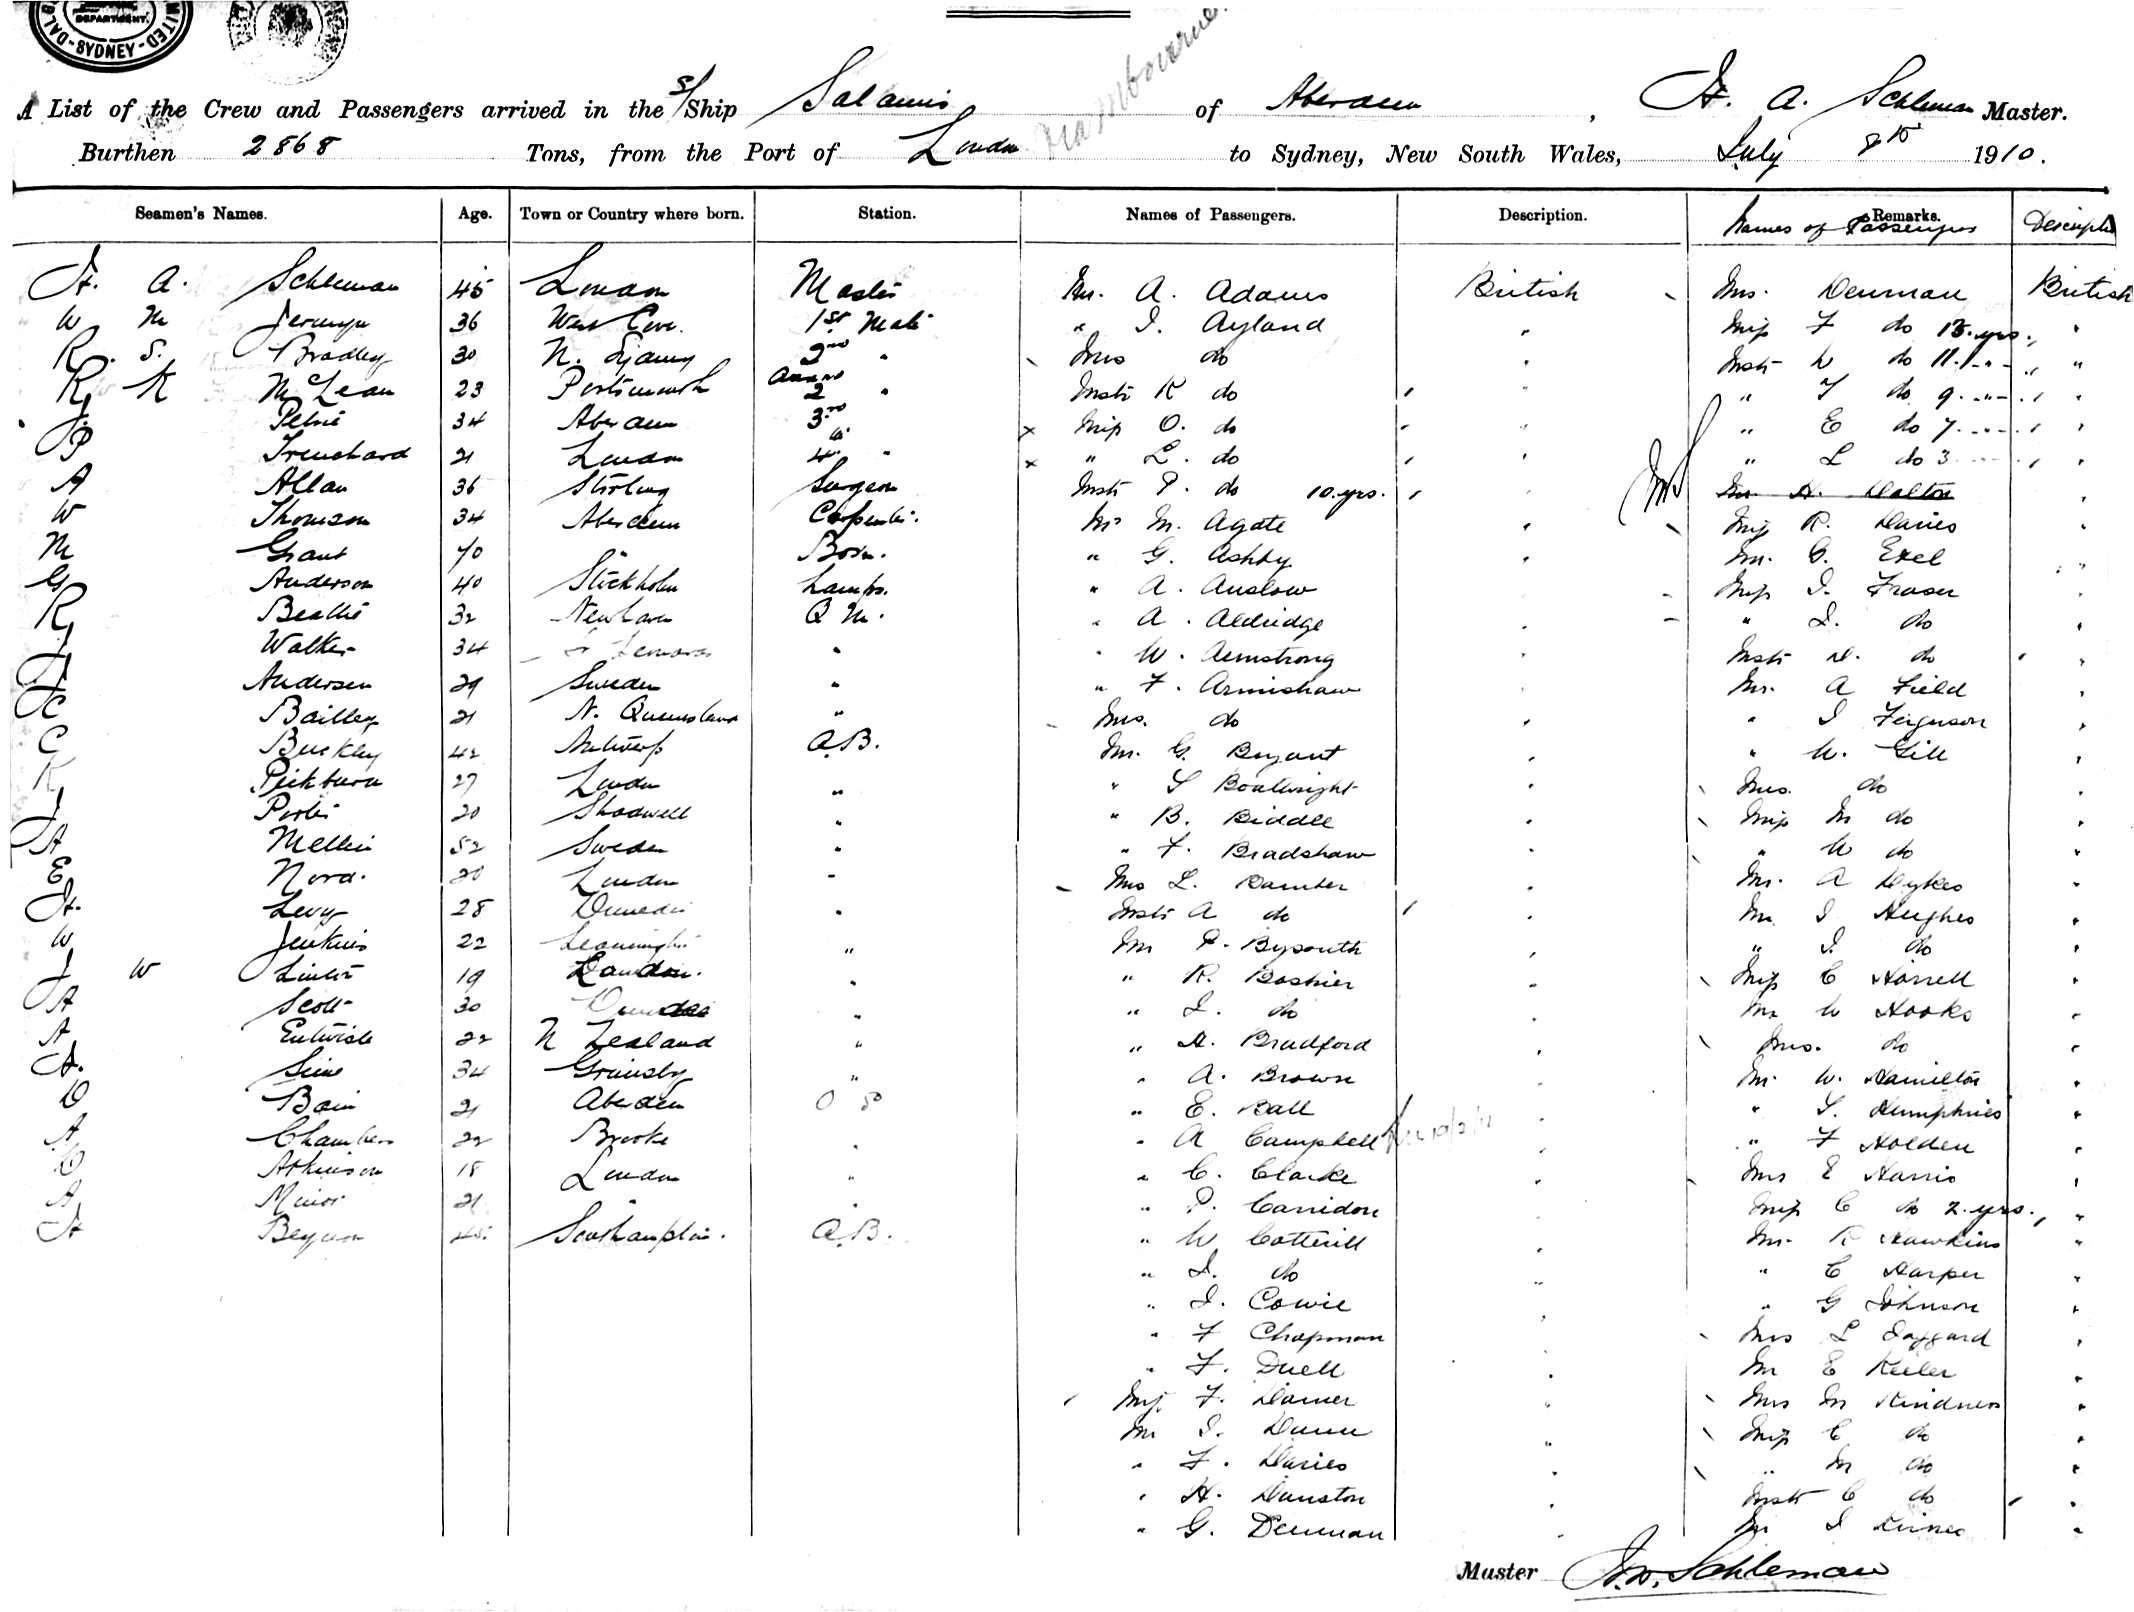 DEPARTMENT.
SYDNEY
A List of the Crew and Passengers arrived in the S/Ship Salamis of Aberdeen, H. A. Schleman Master.
Burthen 2868 Tons, from the Port of London to Sydney, New South Wales, July 8th 1910.
Seamen's Names. Age. Town or Country where born. Station. Names of Passengers. Description. Remarks. Names of Passengers Descripti
H. A. Schleman 45 London Master Mr. A. Adams British Mrs. Denman British
W M 36 1st Mate " I. Ayland " Miss F do 13. yrs. "
R. S. Bradley 30 N. Sydney 2nd " Mrs do " Mstr W do 11. " "
R K McLean 23 Portsmouth 2 " Mstr R do " " do 9. " "
J Petrie 34 Aberdeen 3rd Miss O. do " " E do 7. " "
P Trenchard 21 London 4th " " L. do " " L do 3 " "
A Allan 36 Stirling Surgeon Mstr P. do 10. yrs. " Mr. H. Dalton "
W Thomson 34 Aberdeen Carpenter. Mr M. Agate " Miss R. Davies "
M Grant 40 " Bosn. " G. Ashby " Mr. G. Exel "
G Anderson 40 Stockholm Lamps. " A. Anslow Miss I. Fraser "
R Beattie 32 Newhaven Q M. " A. Aldridge " " I. do "
J Walker 34 " " W. Armstrong " Mstr D. do "
Andersen 29 Sweden " " F. Armishaw " Mr. A Field "
C Bailley 21 N. Queensland " Mrs. do " " I Ferguson "
C Buckley 42 Antwerp A.B. Mr. G. Bryant " " W. Gill "
R Pickburn 27 London " " S Boatwright " Mrs. do "
J Porter 20 Shadwell " " B. Biddle " Miss M do "
A Mellin 52 Sweden " " F. Bradshaw " " W do "
E Nord. 20 London " Mrs L. Bamber " Mr. A Dykes "
H. Levy 28 Dunedin " Mstr A do " Mr I Hughes "
W Jenkins 22 Leamington " Mr P. Bysouth " " I. do "
J W Linter 19 London. " " R. Boshier " Miss C Horrell "
A Scott 30 Dundee " " I. do " Mr W Hooks "
A Entwisle 22 N Zealand " " H. Bradford " Mrs. do "
A. Sime 34 Grimsby " " A. Brown " Mr. W. Hamilton "
D Bain 21 Aberdeen O S " E. Ball " " S. Humphries "
A Chambers 22 Brooke " " A Campbell " " F Holden "
C Atkinson 18 London " " C. Clarke " Mrs E Harris "
A Minor 21 " " " P. Carridon " Miss C do 2. yrs. "
H Beynon 45 Southampton. A.B. " W Cotterill " Mr. R Hawkins "
" I. do " " C Harper "
" I. Cowie " " G Johnson "
" F Chapman " Mrs L Jaggard "
" F. Duell " Mr E Keeler "
Miss F. Damer " Mrs M Kindness "
Mr I. Dunn " Miss C do "
" F. Davies " " M do "
" H. Dunston " Mstr C do "
" G. Denman " Mr I "
Master Schleman